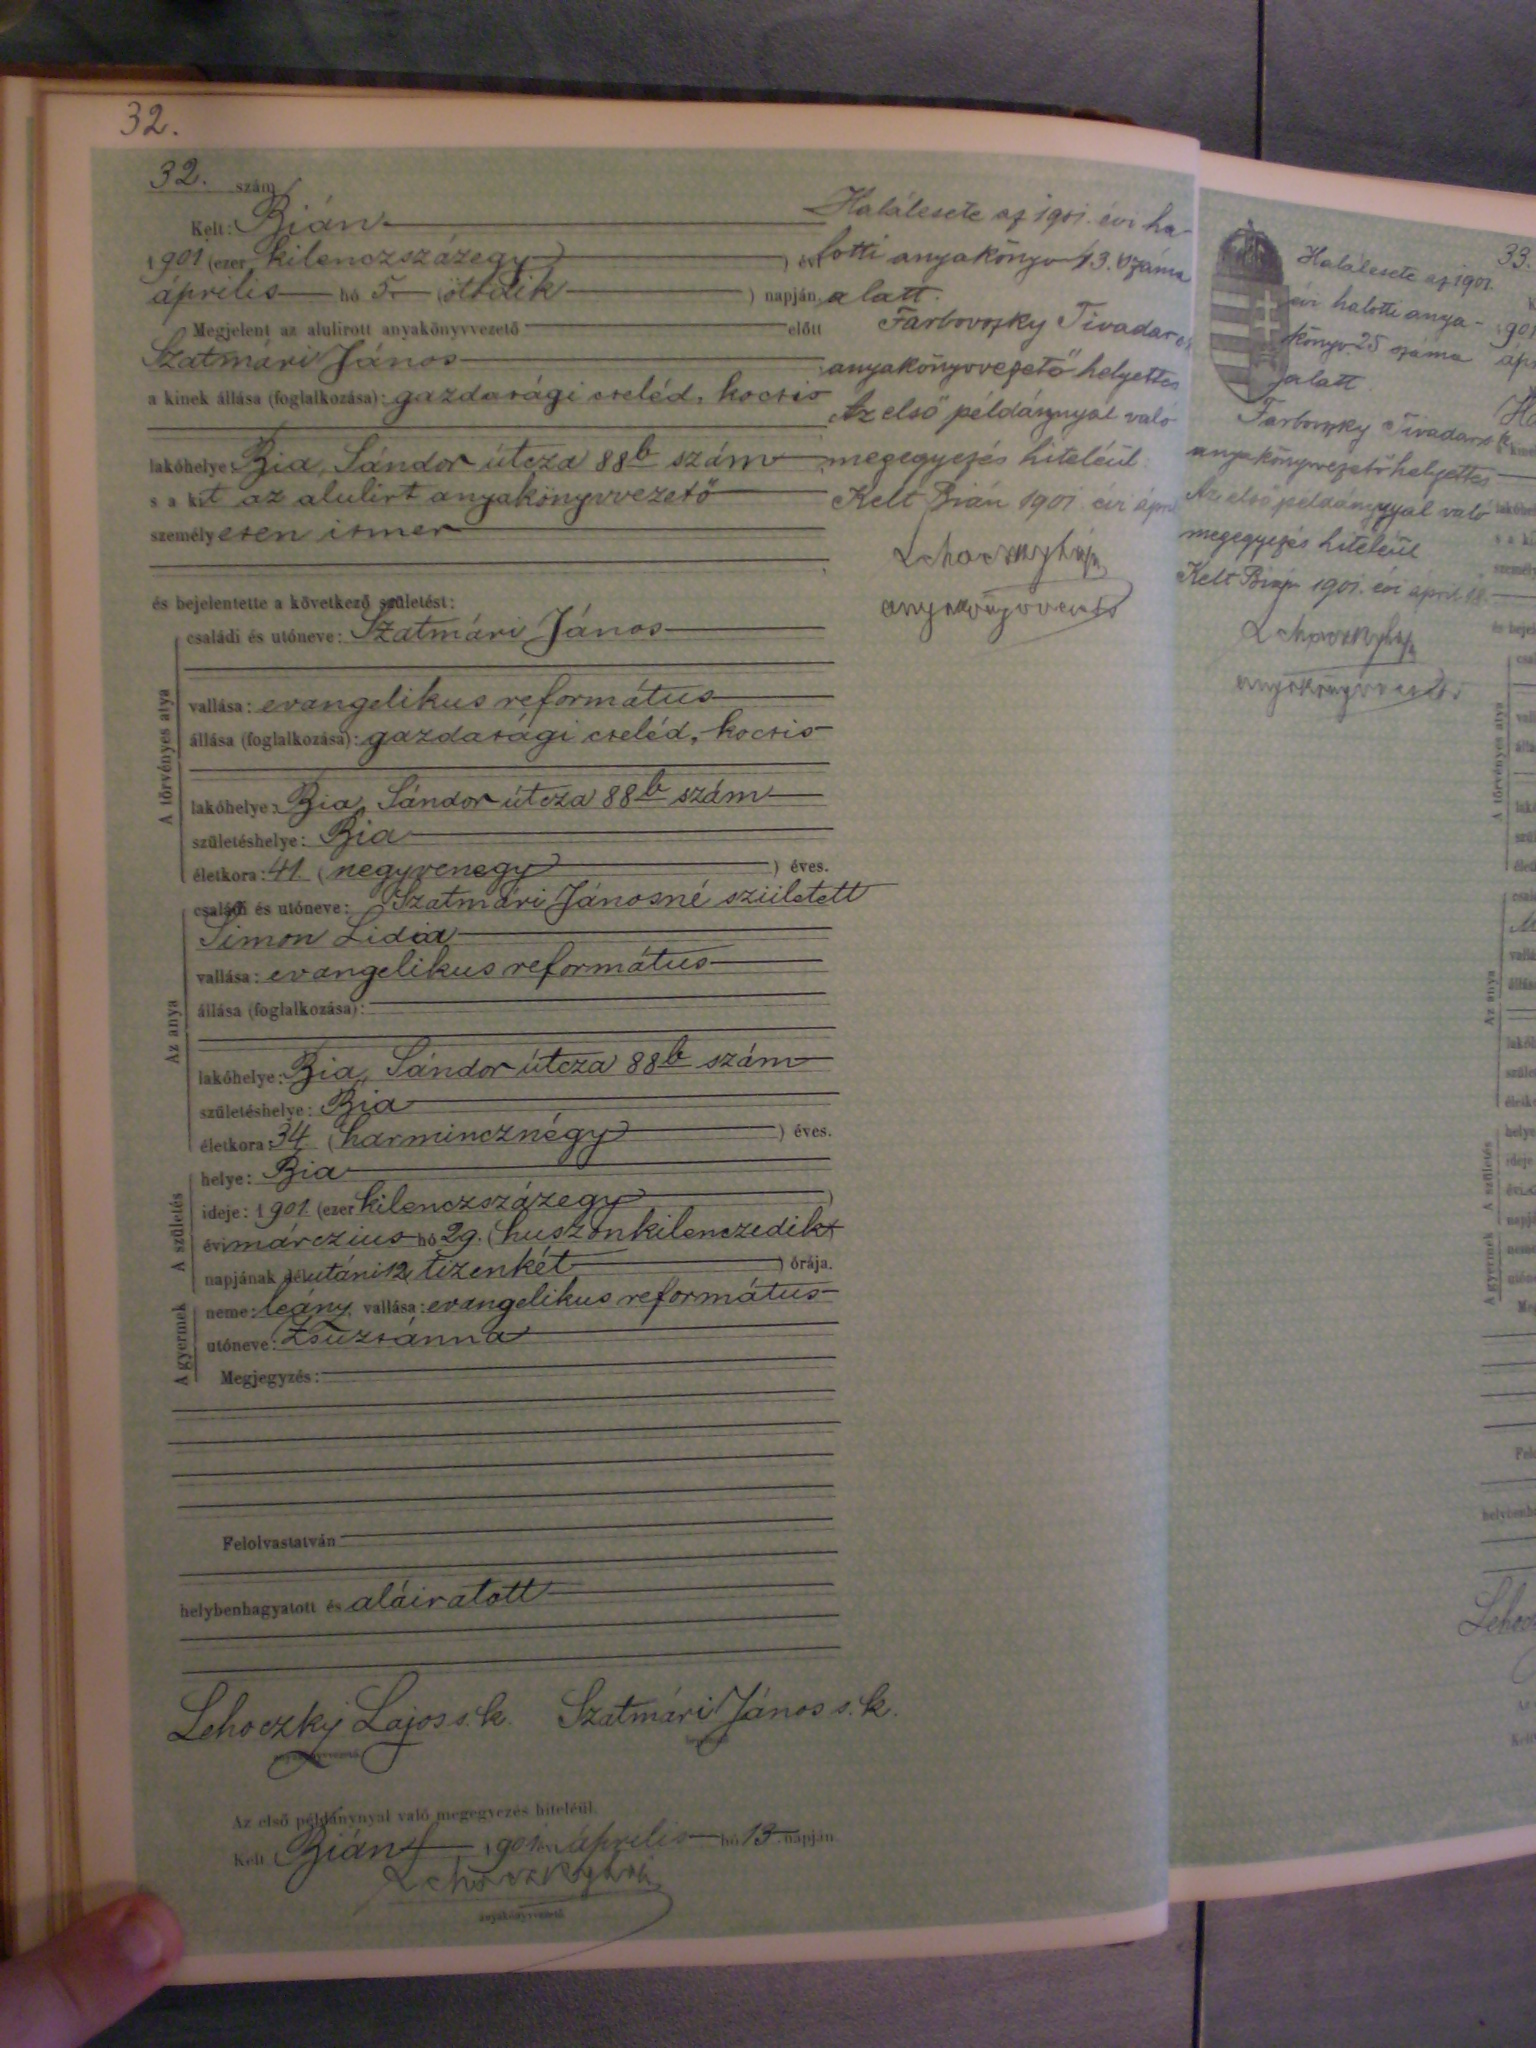 32.
32. szám
Kelt: Bián
1901 (ezer kilenczszázegy) évi
április hó 5. (ötödik) napján
Megjelent az alulirott anyakönyvvezető előtt
Szatmári János
a kinek állása (foglalkozása): gazdasági cseléd, kocsis
lakóhelye: Bia, Sándor útcza 88b szám
s a kit az alulirt anyakönyvvezető
személyesen ismer
és bejelentette a következő születést:
A törvényes atya
családi és utóneve: Szatmári János
vallása: evangelikus református
állása (foglalkozása): gazdasági cseléd, kocsis
lakóhelye: Bia, Sándor útcza 88b szám
születéshelye: Bia
életkora: 41 (negyvenegy) éves.
Az anya
családi és utóneve: Szatmári Jánosné született
Simon Lidia
vallása: evangelikus református
állása (foglalkozása):
lakóhelye: Bia, Sándor útcza 88b szám
születéshelye: Bia
életkora: 34 (harmincznégy) éves.
A születés
helye: Bia
ideje: 1901 (ezer kilenczszázegy)
évi márczius hó 29. (huszonkilenczedik)
napjának délutáni 12 (tizenkét) órája.
A gyermek
neme: leány, vallása: evangelikus református
utóneve: Zsuzsánna
Megjegyzés:
Felolvastatván
helybenhagyatott és aláiratott
Lehoczky Lajos s. k. Szatmári János s. k.
anyakönyvvezető
Az első példánynyal való megegyezés hiteléül.
Kelt Bián 1901 évi április hó 13 napján
anyakönyvvezető
Halálesete az 1901. évi ha-
lotti anyakönyv 43. száma
alatt.
Farbovszky Tivadar
anyakönyvvezető helyettes
Az első példánynyal való
megegyezés hiteléül.
Kelt Bián 1901. évi ápr
anyakönyvvezető
33.
Halálesete az 1901.
évi halotti anya-
könyv 25 száma
alatt.
Farbovszky Tivadar
anyakönyvvezető helyettes
Az első példánynyal való
megegyezés hiteléül
Kelt Bián 1901. évi ápril
anyakönyvvezető